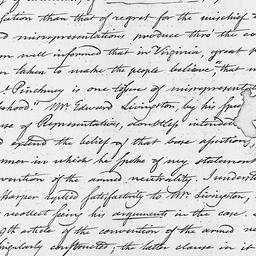 faction than that of regret for the mischief
misrepresentations produce thro' the co
well informed that in Virginia, great
taken to make the people believe "that
Pinckney is one tissue of misrepresent
hood." Mr. Edward Livingston, by his spe
se of Representatives, doubtless intended
extend the belief of that base assertion,
nner in which he spoke of my statement
vention of the armed neutrality. I underst
Harper replied satisfactorily to Mr. Livingston,
recollect seeing his arguments in the case.
9th article of the convention of the armed ne
singularly constructed; the latter clause in it